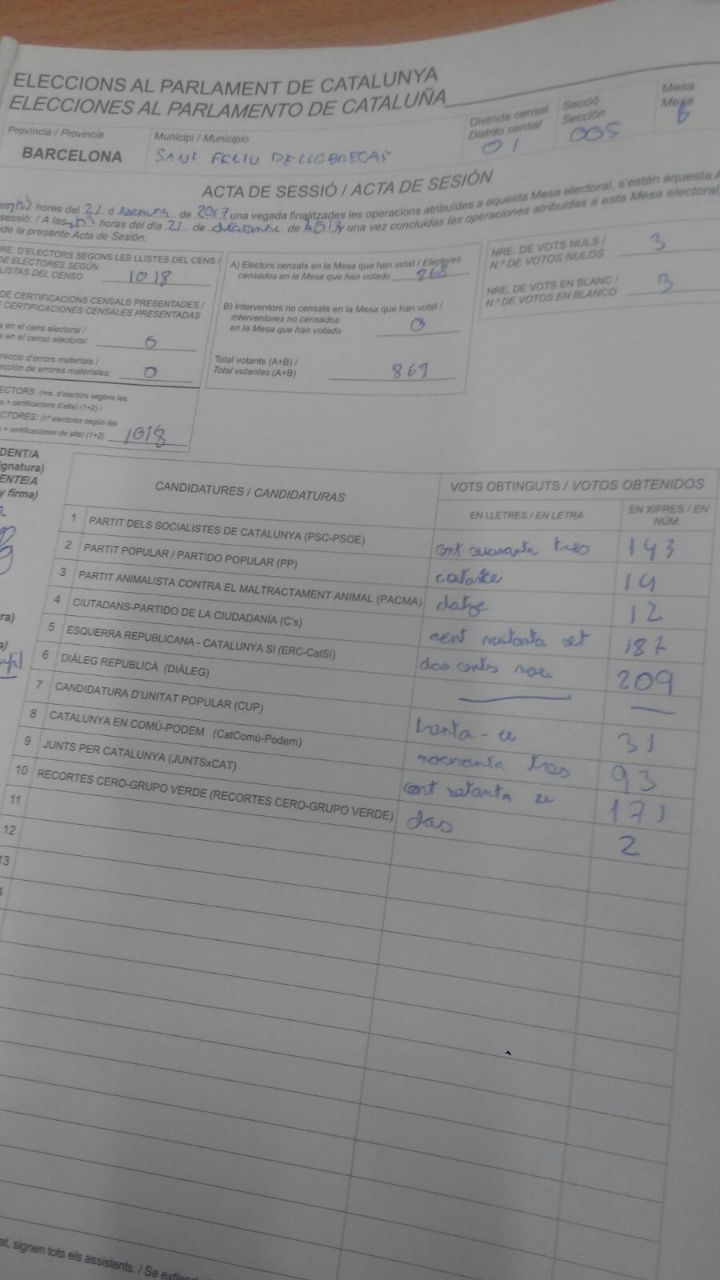 ELECCIONS AL PARLAMENT DE CATALUNYA
ELECCIONES AL PARLAMENTO DE CATALUÑA
Província / Provincia
BARCELONA
Municipi / Municipio
SANT FELIU DE LLOBREGAT
Districte censal
Distrito censal
01
Secció
Sección
005
Mesa
Mesa
B
ACTA DE SESSIÓ / ACTA DE SESIÓN
hores del 21 d de 2017 una vegada finalitzades les operacions atribuïdes a aquesta Mesa electoral, s'estén aquesta
sessió: / A las horas del día 21 de diciembre de 2017 una vez concluidas las operaciones atribuidas a esta Mesa electoral
de la presente Acta de Sesión:
RE. D'ELECTORS SEGONS LES LLISTES DEL CENS /
DE ELECTORES SEGÚN
LISTAS DEL CENSO 1018
DE CERTIFICACIONS CENSALS PRESENTADES /
CERTIFICACIONES CENSALES PRESENTADAS
s en el cens electoral /
en el censo electoral: 0
recció d'errors materials /
cción de errores materiales: 0
ECTORS: (nre. d'electors segons les
s + certificacions d'alta) (1+2) /
CTORES: (nº electores según las
s + certificaciones de alta) (1+2) 1018
A) Electors censats en la Mesa que han votat / Electores
censados en la Mesa que han votado 868
B) Interventors no censats en la Mesa que han votat /
Interventores no censados
en la Mesa que han votado 0
Total votants (A+B) /
Total votantes (A+B) 868
NRE. DE VOTS NULS /
N.º DE VOTOS NULOS 3
NRE. DE VOTS EN BLANC /
N.º DE VOTOS EN BLANCO 3
DENT/A
ignatura)
ENTE/A
y firma)
CANDIDATURES / CANDIDATURAS
VOTS OBTINGUTS / VOTOS OBTENIDOS
EN LLETRES / EN LETRA
EN XIFRES / EN NÚM.
1 PARTIT DELS SOCIALISTES DE CATALUNYA (PSC-PSOE) cent quaranta tres 143
2 PARTIT POPULAR / PARTIDO POPULAR (PP) catorze 14
3 PARTIT ANIMALISTA CONTRA EL MALTRACTAMENT ANIMAL (PACMA) dotze 12
4 CIUTADANS-PARTIDO DE LA CIUDADANÍA (C's) cent vuitanta set 187
5 ESQUERRA REPUBLICANA - CATALUNYA SÍ (ERC-CatSí) dos cents nou 209
6 DIÀLEG REPUBLICÀ (DIÀLEG) — —
7 CANDIDATURA D'UNITAT POPULAR (CUP) trenta-u 31
8 CATALUNYA EN COMÚ-PODEM (CatComú-Podem) noranta tres 93
9 JUNTS PER CATALUNYA (JUNTSxCAT) cent setanta u 171
10 RECORTES CERO-GRUPO VERDE (RECORTES CERO-GRUPO VERDE) dos 2
11
12
13
at, signen tots els assistents. / Se extiend